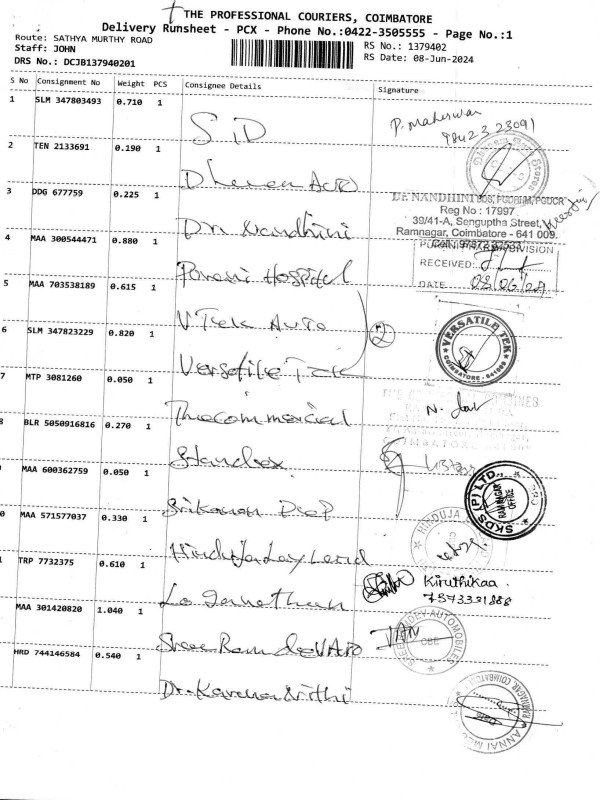 THE PROFESSIONAL COURIERS, COIMBATORE
Delivery Runsheet - PCX - Phone No.:0422-3505555 - Page No.:1
Route: SATHYA MURTHY ROAD
Staff: JOHN
DRS No.: DCJB137940201
RS No.: 1379402
RS Date: 08-Jun-2024
S No Consignment No Weight PCS Consignee Details Signature
1 SLM 347803493 0.710 1 SID P. Maheswari
98423 23091
2 TEN 2133691 0.190 1 Dheran Auto
3 DDG 677759 0.225 1 Dr. Nandhini
Dr. NANDHINI
Reg No : 17997
39/41-A, Senguptha Street,
Ramnagar, Coimbatore - 641 009.
4 MAA 300544471 0.880 1 Purani Hospital
DIVISION
RECEIVED:
DATE 08/06/24
5 MAA 703538189 0.615 1 V Tek Auto
2
6 SLM 347823229 0.820 1 Versatile Tek
VERSATILE TEK
COIMBATORE - 641009
7 MTP 3081260 0.050 1 The commercial
BLR 5050916816 0.270 1 Standex
MAA 600362759 0.050 1 Srikanan Dep
SKDS (P) LTD.,
RAM NAGAR
OFFICE
MAA 571577037 0.330 1 Hinduja Leyland
HINDUJA
TRP 7732375 0.610 1 Loganathan Kiruthikaa.
7373331888
MAA 301420820 1.040 1 Sree Ramdev Auto
AUTOMOBILES
CBE
HRD 744146584 0.540 1 Dr. Karunanithi